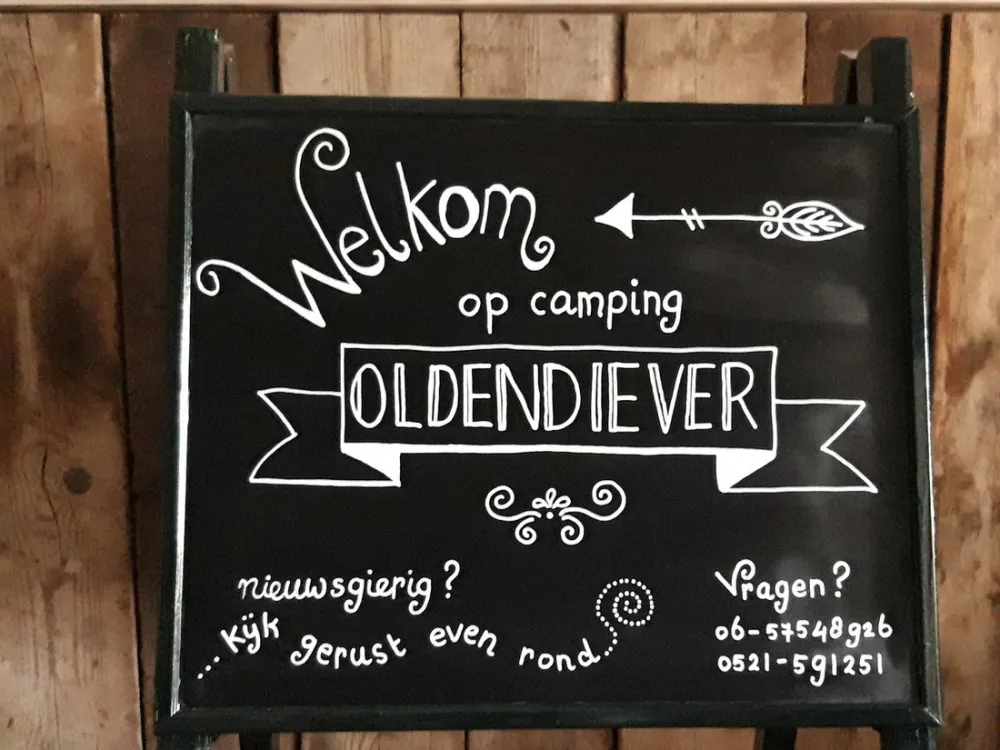 Welkom
op camping
OLDENDIEVER
nieuwsgierig?
...kijk gerust even rond...
Vragen?
06-57548926
0521-591251